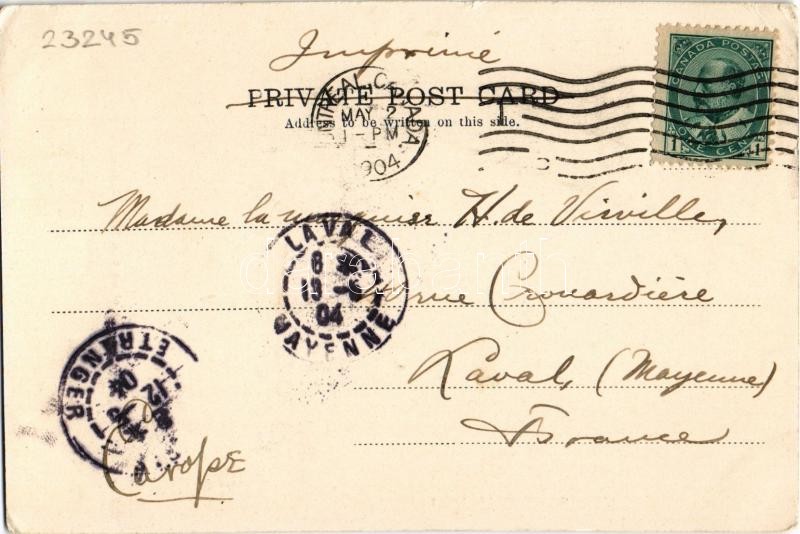 23245
Imprimé
CANADA POSTAGE
ONE CENT
1 1
MONTREAL, CANADA
MAY 2
1-PM
1904
PRIVATE POST CARD
Address to be written on this side.
Madame la marquise H. de Virville,
LAVAL
8
13
04
MAYENNE
rue Crouardière
Laval, (Mayenne)
France
ETRANGER
12
Europe